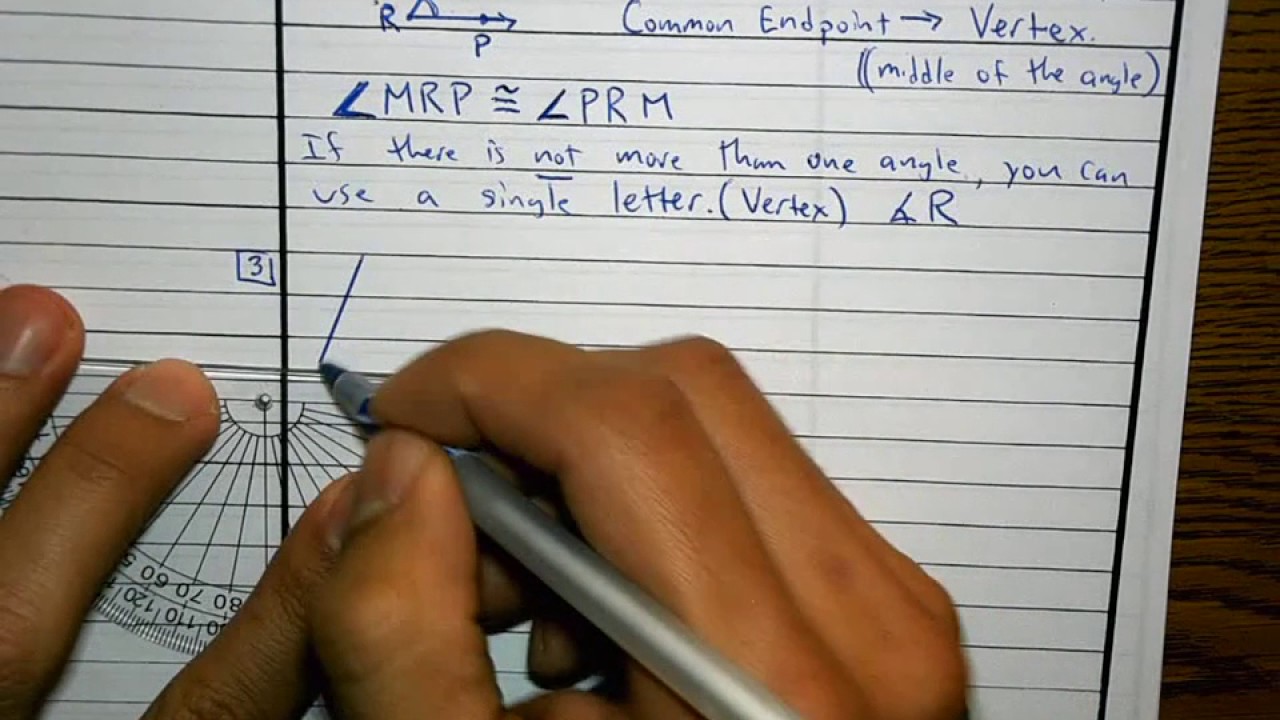 R
P
Common Endpoint → Vertex.
(middle of the angle)
∠MRP ≅ ∠PRM
If there is not more than one angle, you can
use a single letter. (Vertex) ∡R
3
50 60 70 80
120 110